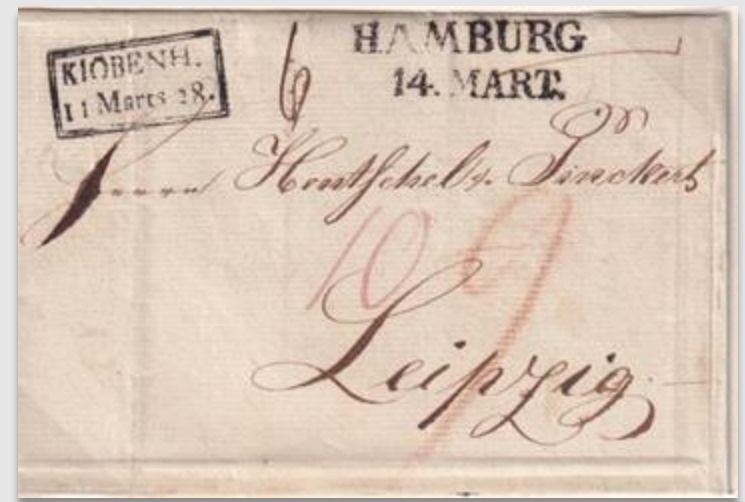 KIOBENH.
11 Marts 28.
6
HAMBURG
14. MART.
Herrn Hentschel & Pinckert
10
9
Leipzig